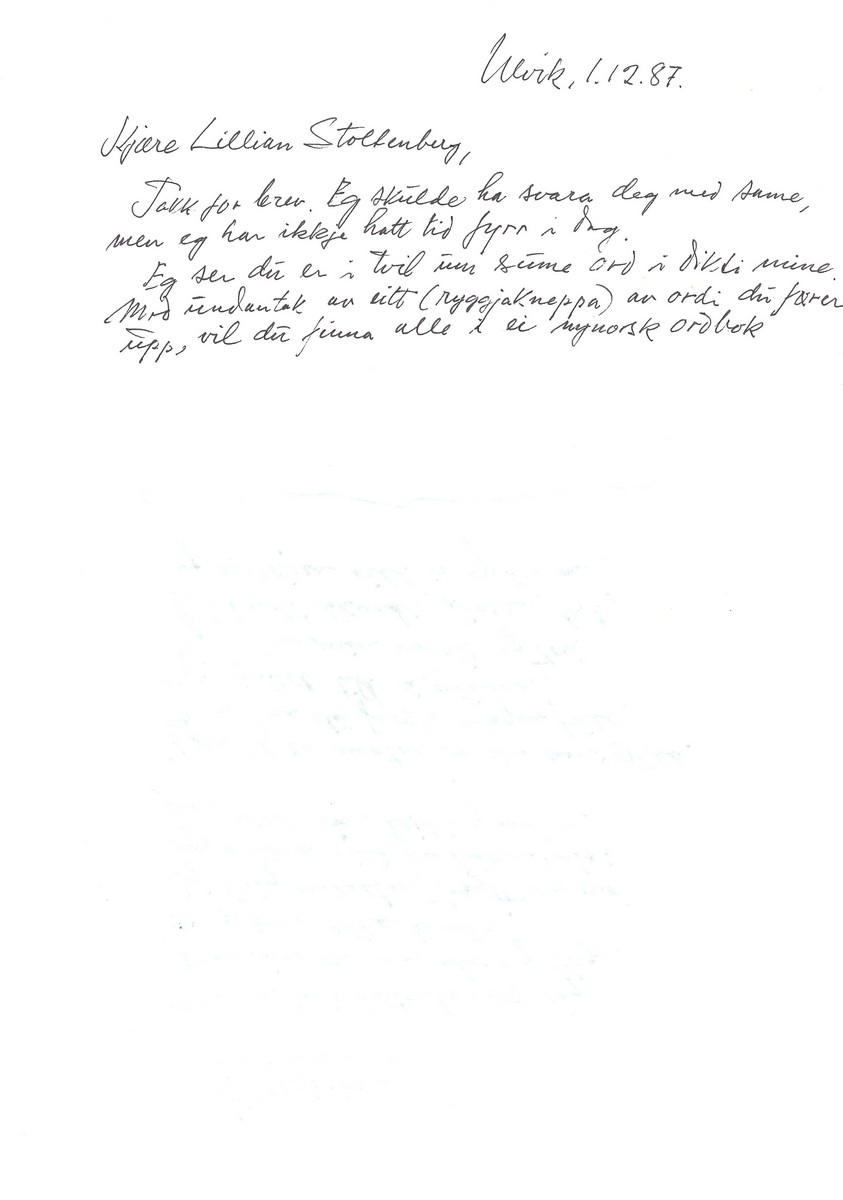 Ulvik, 1.12.87.
Kjære Lillian Stoltenberg,
Takk for brev. Eg skulde ha svara deg med same,
men eg har ikkje hatt tid fyrr i dag.
Eg ser du er i tvil um sume ord i dikti mine.
Med undantak av eitt (ryggjakneppa) av ordi du fører
upp, vil du finna alle i ei nynorsk ordbok